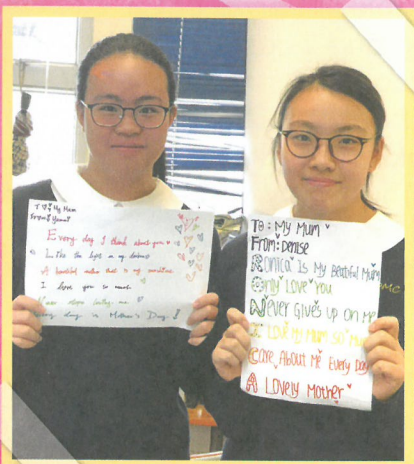 To: My Mum
From:
Every day I think about you
Like the light in my darkness
A beautiful mother that is my
I love you so much
Never stops loving me
day is Mother's Day!
To: My Mum
From: Denise
Ronica Is My Beatiful Mum
Only Love You
Never Gives up on Me
I Love My Mum so
Care About Me Every Day
A Lovely Mother